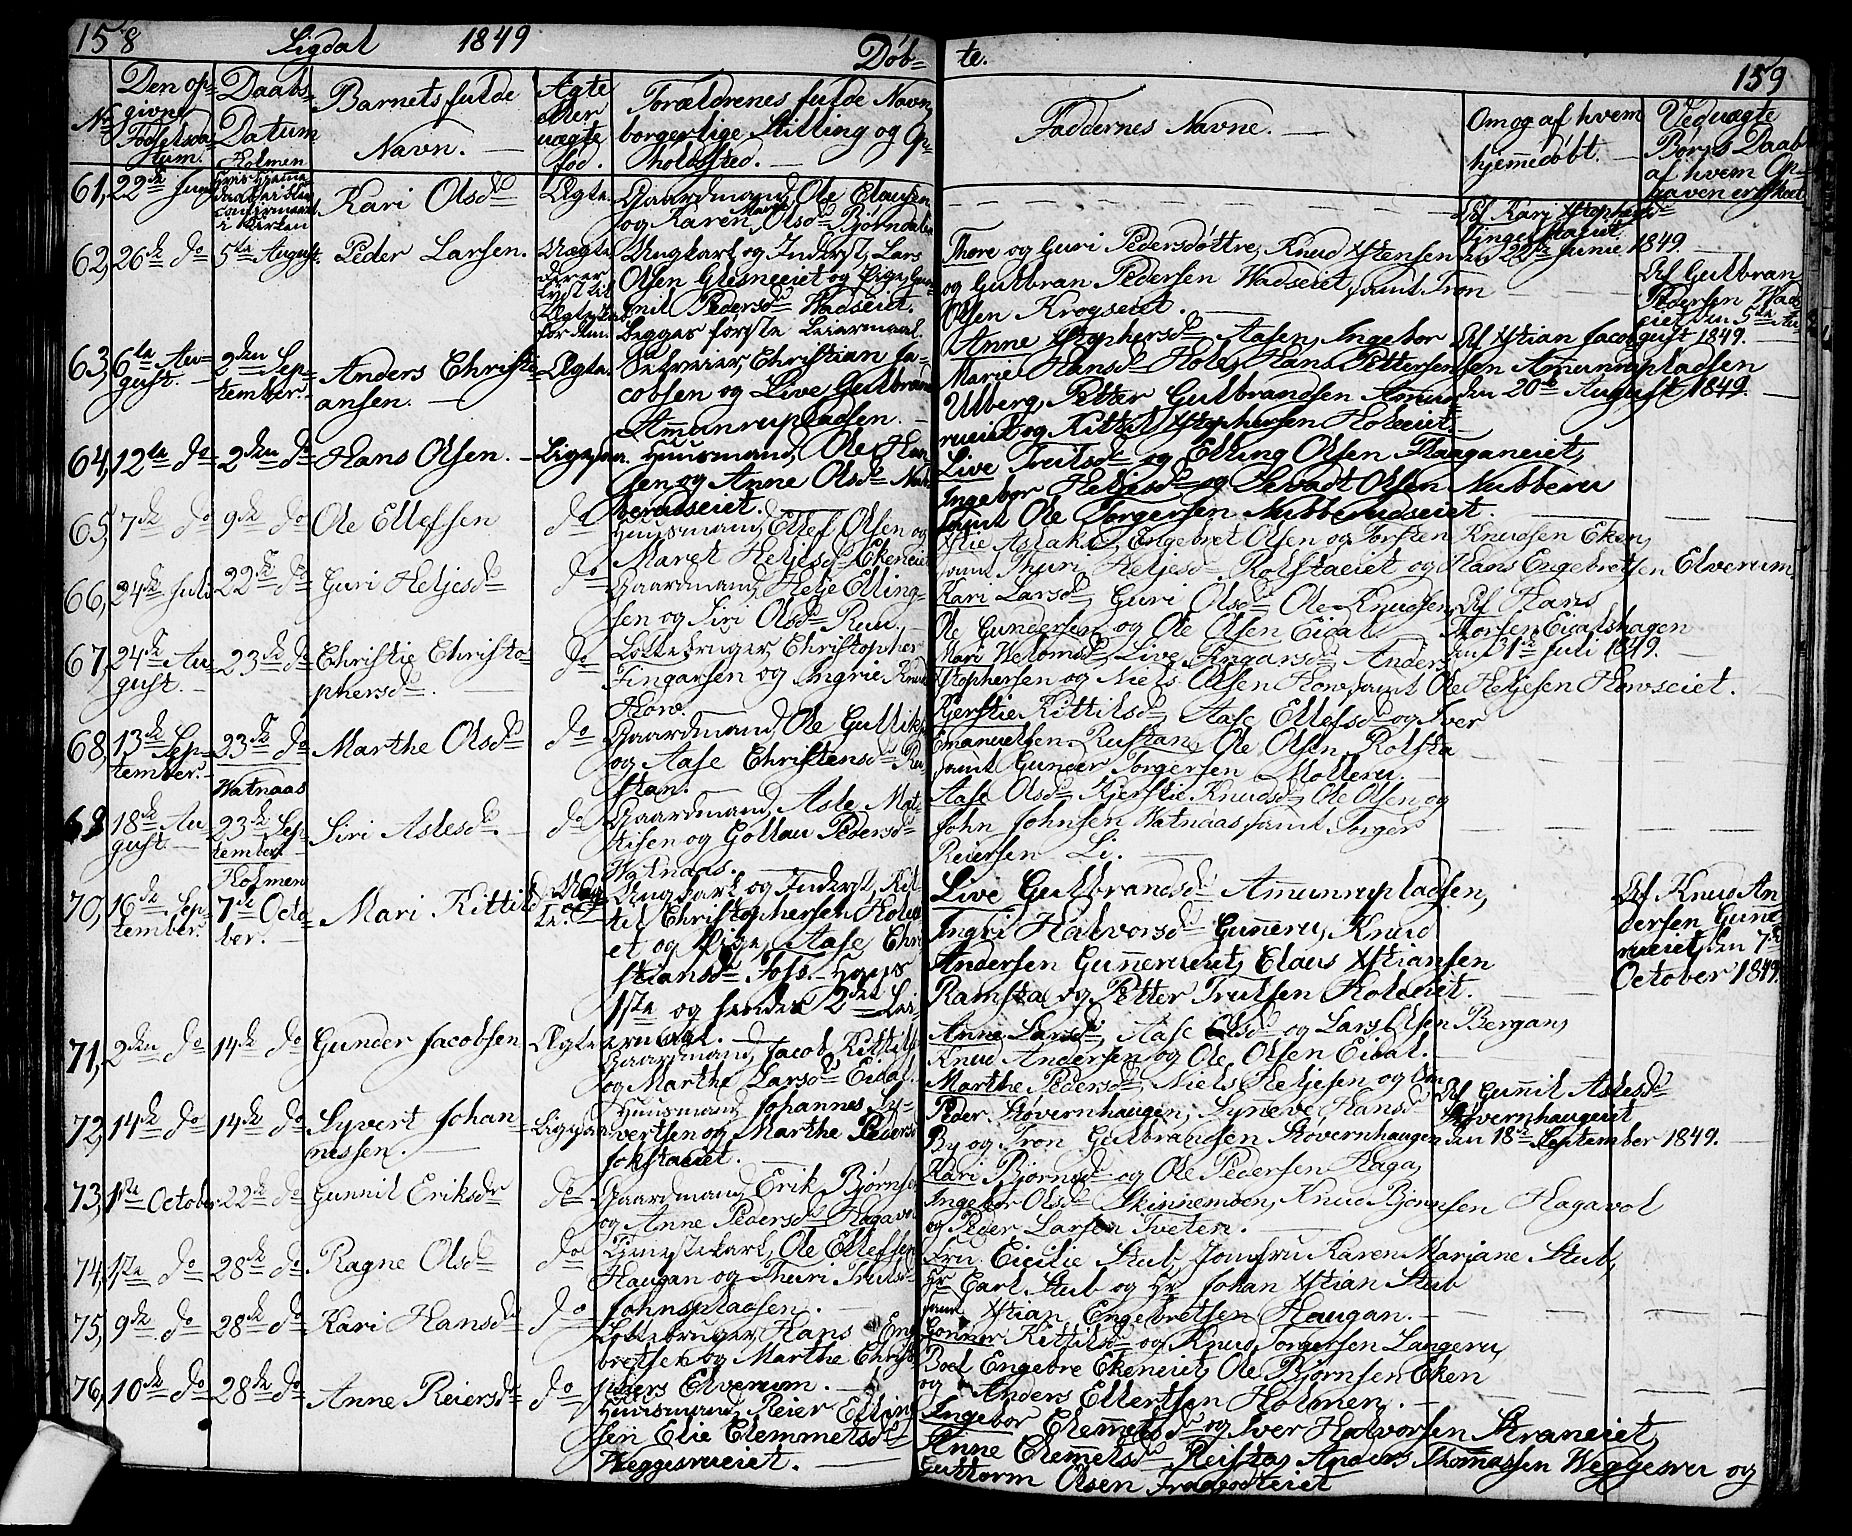 158 Sigdal 1849 Døb-
te. 159
No Den op-
givne
Fødselsda-
tum.
Daabs
Datum
Barnets fulde
Navn.
Ægte
eller
uægte
fød.
Forældrenes fulde Navn,
borgerlige Stilling og Op-
holdssted.
Faddernes Navne.
Om og af hvem
hjemmedøbt.
Ved uægte
Børns Daab
af hvem Op-
gaven er skeet
Holmen
61, 22de Juni
confirmeret
i Kirken
Kari Olsdr
Ægte.
Gaardmand Ole Clausen
og Karen Marie Olsdr Bjørndalen
Af Kari Xstophersdr
den 22de Junie 1849
62, 26de do 5te August. Peder Larsen.
Uægte
Ungkarl og Inderst, Lars
Olsen Glesneeiet og Pige, Gun-
nil Pedersdr Wadseiet.
Begges første Leiermaal.
Thore og Guri Pedersdøttre, Knud Xstensen
og Gulbran Pedersen Wadseiet, samt Tron
Olsen Krogseiet.
Af Gulbran
Pedersen Wads
eiet den 5te Au
gust 1849.
63, 6te Au-
gust.
2den Sep-
tember.
Anders Christi-
ansen.
Ægte.
Selveier, Christian Ja-
cobsen og Live Gulbrands
Amunrupladsen.
Anne Xstophersdr Aasen, Ingebor
Marie Hansdr Hole, Hans Pettersen
Ulberg, Petter Gulbrandsen Amun-
rueiet og Kittil Xstophersen Holeeiet.
Af Xstian Jacob
sen Amunrupladsen
den 20de August 1849.
64, 12te do 2den do Hans Olsen.
Ligesaa.
Huusmand, Ole Han-
sen og Anne Olsdr Nub-
berudseiet.
Live Troilsdr og Elling Olsen Haaganeiet,
Ingebor Heljesdr og Sevadt Olsen Nubberu
samt Ole Torgersen Nubberudseiet.
65, 7de do 9de do Ole Ellefsen do
Huusmand, Ellef Olsen og
Maret Heljesdr Ekeneiet
Engebret Olsen og Torsten Knudsen Eken,
samt Thuri Heljesdr Rolstadeiet og Hans Engebretsen Elverum
66, 24de Juli 22de do Guri Heljesdr do
Gaardmand, Helje Elling-
sen og Siri Olsdr Ruu.
Kari Larsdr, Guri Olsdr Ole Knudsen,
Ole Gundersen og Ole Olsen Eidal
Af Hans
Thorsen Eidalshagen
den 1te Juli 1849.
67, 24de Au-
gust.
23de do
Christie Christo-
phersdr.
do
Lottebruger Christopher
Fingarsen og Ingrie Knuds
How.
Mari Welomsdr, Live Fingarsdr, Anders
Xstophersen og Niels Olsen How, samt Ole Heljesen Howseiet.
68, 13de Sep-
tember
23de do
Marthe Olsdr do
Gaardmand, Ole Gulliks
og Aase Christensdr Ru-
stan.
Kjerstie Kittilsdr, Aase Ellefsdr og Iver
Emanuelsen Rustan, Ole Olsen Rolsta
samt Gunder Torgersen Mølleru.
Watnaas
69 18de Au-
gust
23de Sep-
tember.
Siri Aslesdr. do
Gaardmand, Asle Mat-
tisen og Gollau Pedersdr
Watnaas.
Aase Olsdr, Kjerstie Knudsdr, Ole Olsen og
John Johnsen Watnaas samt Torger
Reiersen Li.
Holmen
70, 16de Sep-
tember.
7de Octo-
ber.
Mari Kittilsdr
Ungkarl og Inderst, Kit-
til Christophersen Holeei-
et og Pige, Aase Chri-
stiansdr Foss. Hans
1ste og hendes 2den Lei-
ermaal.
Live Gulbrandsdr Amunrupladsen,
Ingri Halvorsdr Gunneru, Knud
Andersen Gunnerueiet, Claus Xstiansen
Ramsta og Petter Trulsen Holeeiet.
Af Knud An
dersen Gunne
rueiet, den 7de
October 1849.
71, 2den do 14de do Gunder Jacobsen Ægte
Gaardmand, Jacob Kittils
og Marthe Larsdr Eidal.
Anne Larsdr, Aase Olsdr og Lars Olsen Bergan,
Knud Andersen og Ole Olsen Eidal.
72, 14de do 14de do Syvert Johan-
nessen.
Ligesaa
Huusmand Johannes Sy-
vertsen og Marthe Pedersdr
Jokstadeiet.
Marthe Pedersdr, Niels Heljesen og
Peder Støvernhaugen, Syneve Hansdr
By og Tron Gulbrandsen Støvernhaugen
Af Gunnil Aslesdr
Støvernhaugeiet
den 18de September 1849.
73, 1ste October 22de do Gunnil Eriksdr do
Gaardmand Erik Bjørnsen
og Anne Pedersdr Hagavol
Kari Bjørnsdr og Ole Pedersen Haga,
Ingebor Olsdr Skinnemoen, Knud Bjørnsen Hagavol
og Peder Larsen Tveten.
74, 1ste do 28de do Ragne Olsdr do
Tjenestekarl, Ole Ellefsen
Haugan og Thuri Trulsdr
Johnspladsen.
Fru Cicilie Stub, Jomfru Karen Mariane Stub,
Hr Carl Stub og Hr Johan Xstian Stub
samt Xstian Engebretsen Haugan.
75, 9de do 28de do Kari Hansdr do
Lottebruger, Hans Enge-
bretsen og Marthe Christo-
phers Elverum.
Gønner Kittilsdr og Knud Torgersen Langeru,
Boel Engebre Ekeneiet, Ole Bjørnsen Eken
og Anders Ellertsen Holmen.
76, 10de do 28de do Anne Reiersdr do
Huusmand, Reier Elling-
sen Elie Clemmetsdr
Weggesrueiet.
Ingebor Clemmetsdr og Iver Halvorsen Straneiet,
Anne Clemetsdr Reistad, Anders Thomassen Weggesru og
Guttorm Olsen